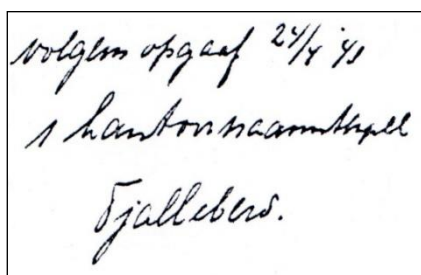 volgens opgaaf 24/4 '41
1 kantoornaamstempel
Tjalleberd.